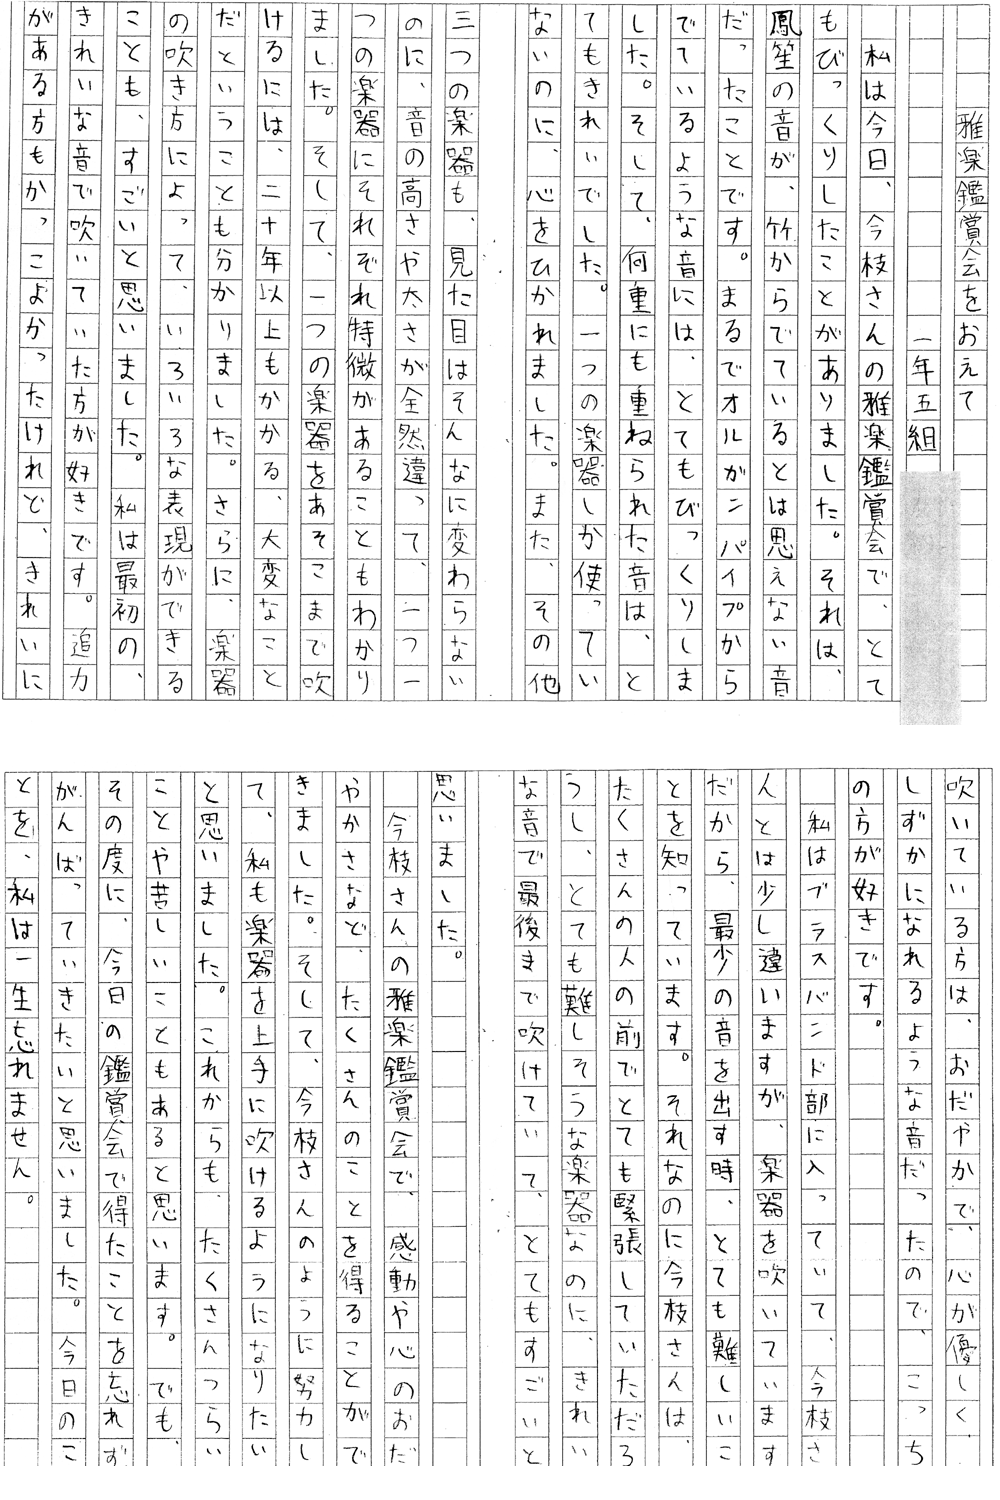 雅楽鑑賞会をおえて
一年五組
私は今日、今枝さんの雅楽鑑賞会で、とて
もびっくりしたことがありました。それは、
鳳笙の音が、竹からでているとは思えない音
だったことです。まるでオルガンパイプから
でているような音には、とてもびっくりしま
した。そして、何重にも重ねられた音は、と
てもきれいでした。一つの楽器しか使ってい
ないのに、心をひかれました。また、その他
三つの楽器も、見た目はそんなに変わらない
のに、音の高さや太さが全然違って、一つ一
つの楽器にそれぞれ特微があることもわかり
ました。そして、一つの楽器をあそこまで吹
けるには、二十年以上もかかる、大変なこと
だということも分かりました。さらに、楽器
の吹き方によって、いろいろな表現ができる
ことも、すごいと思いました。私は最初の、
きれいな音で吹いていた方が好きです。追力
がある方もかっこよかったけれど、きれいに
吹いている方は、おだやかで、心が優しく、
しずかになれるような音だったので、こっち
の方が好きです。
私はブラスバンド部に入っていて、今枝さ
んとは少し違いますが、楽器を吹いています
だから、最少の音を出す時、とても難しいこ
とを知っています。それなのに今枝さんは、
たくさんの人の前でとても緊張していただろ
うし、とても難しそうな楽器なのに、きれい
な音で最後まで吹けていて、とてもすごいと
思いました。
今枝さんの雅楽鑑賞会で、感動や心のおだ
やかさなど、たくさんのことを得ることがで
きました。そして、今枝さんのように努力し
て、私も楽器を上手に吹けるようになりたい
と思いました。これからも、たくさんつらい
ことや苦しいこともあると思います。でも、
その度に、今日の鑑賞会で得たことを忘れず
がんばっていきたいと思いました。今日のこ
とを、私は一生忘れません。